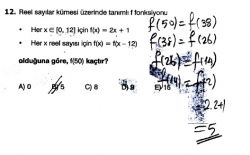 12. Reel sayılar kümesi üzerinde tanımlı f fonksiyonu
• Her x ∈ [0, 12] için f(x) = 2x + 1
• Her x reel sayısı için f(x) = f(x – 12)
olduğuna göre, f(50) kaçtır?
A) 0 B) 5 C) 8 D) 9 E) 16
f(50) = f(38)
f(38) = f(26)
f(26) = f(14)
f(14) = f(2)
2.2+1
= 5